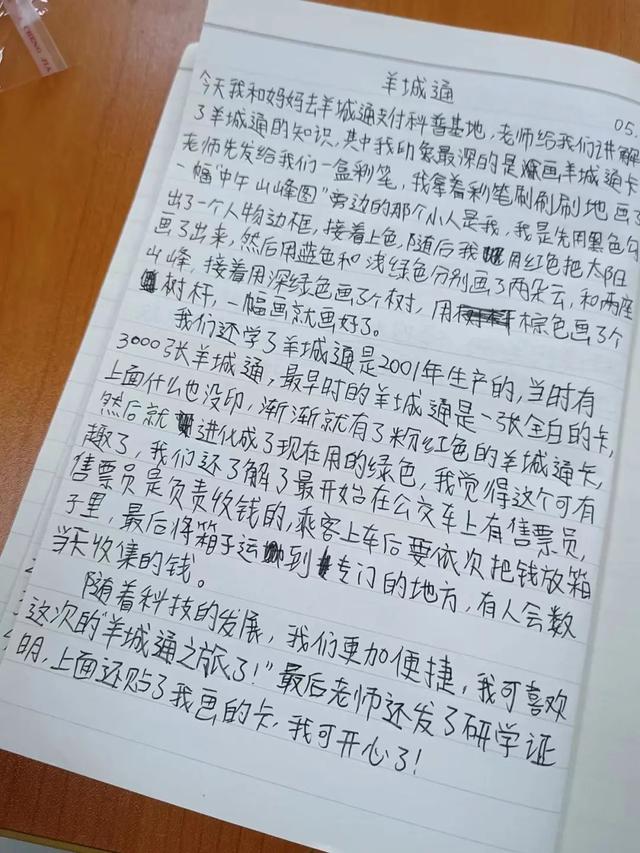 CHENG JIA
羊城通
05.
今天我和妈妈去羊城通支付科普基地,老师给我们讲解
了羊城通的知识,其中我印象最深的是画羊城通卡
老师先发给我们一盒彩笔,我拿着彩笔刷刷刷地画了
一幅"中午山峰图"旁边的那个小人是我,我是先用黑色勾
出了一个人物边框,接着上色,随后我用红色把太阳
画了出来,然后用蓝色和浅绿色分别画了两朵云,和两座
山峰,接着用深绿色画了个树,用棕色画了个
树杆,一幅画就画好了。
我们还学了羊城通是2001年生产的,当时有
3000张羊城通,最早时的羊城通是一张全白的卡,
上面什么也没印,渐渐就有了粉红色的羊城通卡,
然后就进化成了现在用的绿色,我觉得这个可有
趣了,我们还了解了最开始在公交车上有售票员,
售票员是负责收钱的,乘客上车后要依次把钱放箱
子里,最后将箱子运到专门的地方,有人会数
当天收集的钱。
随着科技的发展,我们更加便捷,我可喜欢
这次的"羊城通之旅了!"最后老师还发了研学证
明,上面还贴了我画的卡,我可开心了!